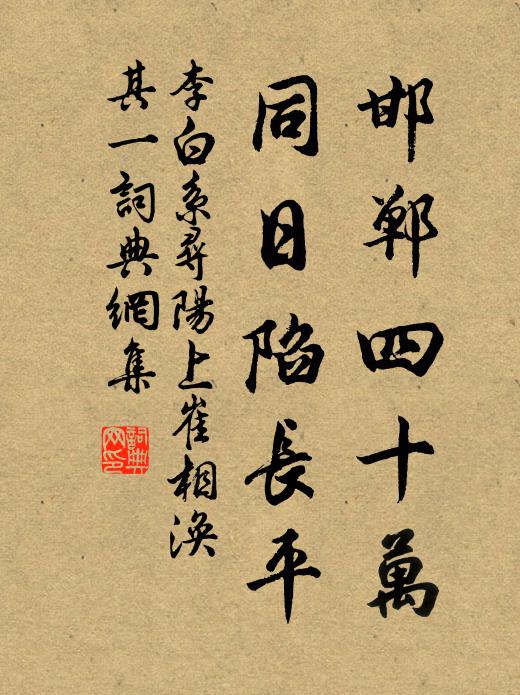 邯鄲四十萬
同日陷長平
李白系尋陽上崔相渙
其一詞典網集
詞典網印